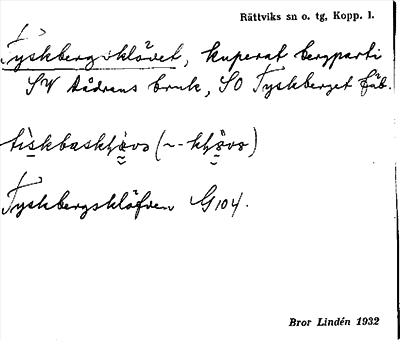 Rättviks sn o. tg, Kopp. l.
Tyskbergsklövet, kuperat bergparti
SV Dådrans bruk, SO Tyskberget fäb.
Tyskbergsklöfven G104.
Bror Lindén 1932